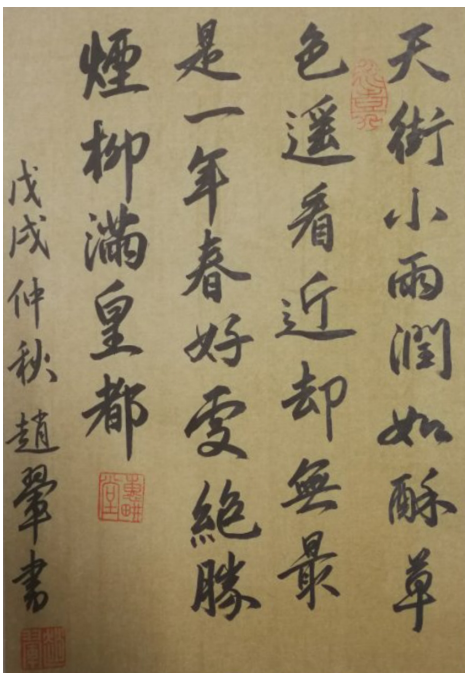 天街小雨潤如酥草
色遥看近却無最
是一年春好處絶勝
煙柳滿皇都
戊戌仲秋 趙翬書